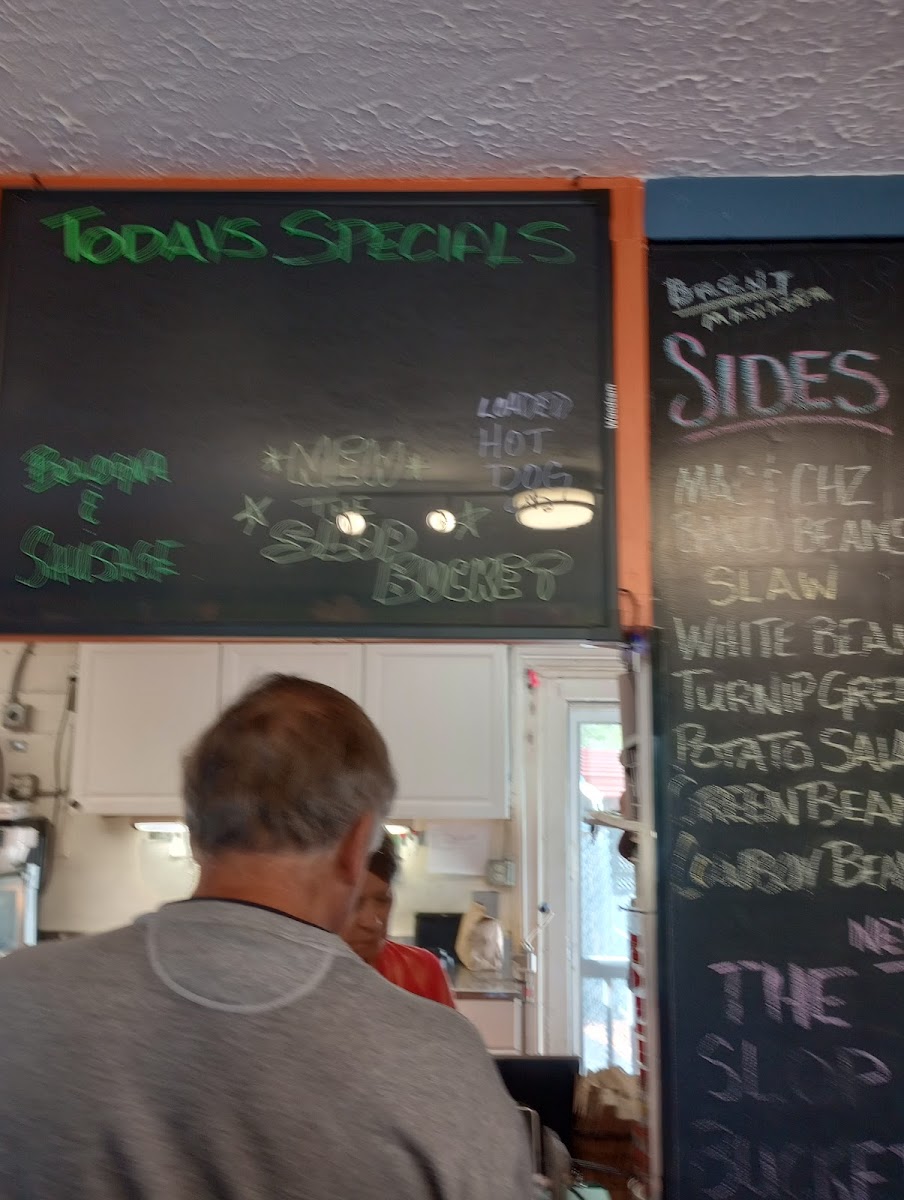 TODAYS SPECIALS
BOLOGNA
&
SAUSAGE
*NEW*
THE
SLOP
BUCKET
LOADED
HOT
DOG
BRENT
MANAGER
SIDES
MAC & CHZ
BAKED BEANS
SLAW
WHITE BEA
TURNIP GREE
POTATO SALA
GREEN BEAN
COWBOY BEA
NE
THE
SLOP
BUCKE